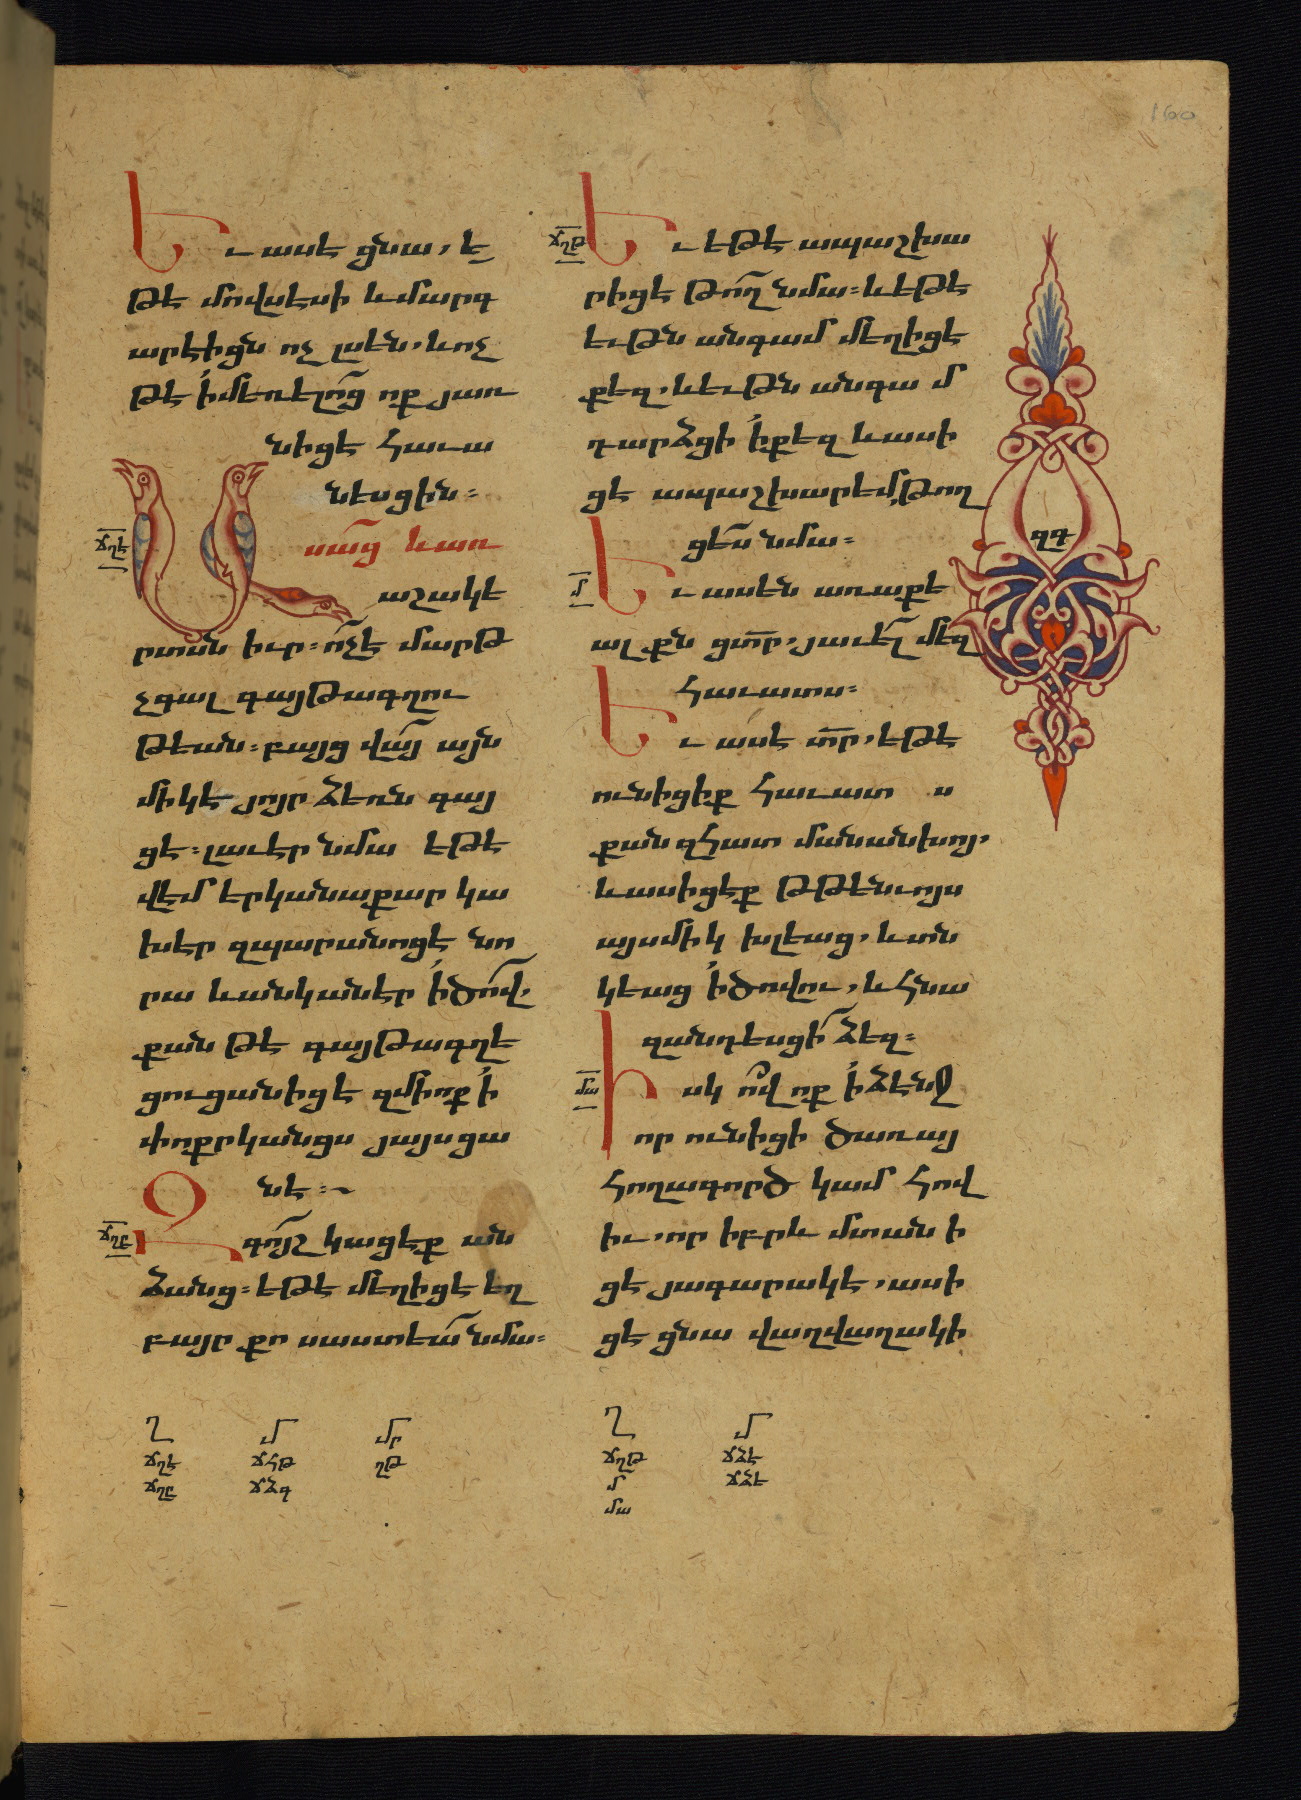 Եւ ասէ ցնա, ե
թէ մովսէսի եւ մարգ
արէիցն ոչ լսեն. և ոչ
թէ ի մեռելոց ոք յառ
նիցէ հաւա
նեսցին:
ՃՂԷ
Ասաց և առ
աշակե
րտսն իւր: ոչ է մարթ
չգալ գայթագղու
թեան: բայց վայ այն
միկ է յոյր ձեռն գայ
ցէ: լաւ էր նմա եթէ
վէմ երկանաքար կա
խէր զպարանոցէ նո
րա և անկանէր ի ծով,
քան թէ գայթագղե
ցուցանիցէ զմի ոք ի
փոքրկանցս յայսցա
նէ:
ՃՂԸ
Զգոյշ կացէք ան
ձանց: եթէ մեղիցէ եղ
բայր քո սաստեա նմա:
ՃՂԹ
Եւ եթէ ապաշխա
րիցէ թող նմա: և եթէ
եւթն անգամ մեղիցէ
քեզ, և եւթն անգամ
դարձցի ի քեզ և ասի
ցէ ապաշխարեմ, թող
ցես նմա:
Մ
Եւ ասեն առաքե
ալքն ցտր, յաւել մեզ
հաւատս:
Եւ ասէ տր, եթէ
ունիցիք հաւատս
քան զհատ մանանխոյ,
և ասիցէք թթենւոյս
այսմիկ խլեաց, և տն
կեաց ի ծովու, և հնա
զանդեսցի ձեզ:
ՄԱ
Իսկ ով ոք ի ձէնջ
որ ունիցի ծառայ
հողագործ կամ հով
իւ, որ իբրև մտանի
ցէ յագարակէ, ասի
ցէ ցնա վաղվաղակի
ԳԳ
160
Ղ Մ ՄՐ
ՃՂԷ ՃՀԹ ՂԹ
ՃՂԸ ՃՁԳ
Ղ Մ
ՃՂԹ ՃՁԷ
Մ ՃՁԵ
ՄԱ